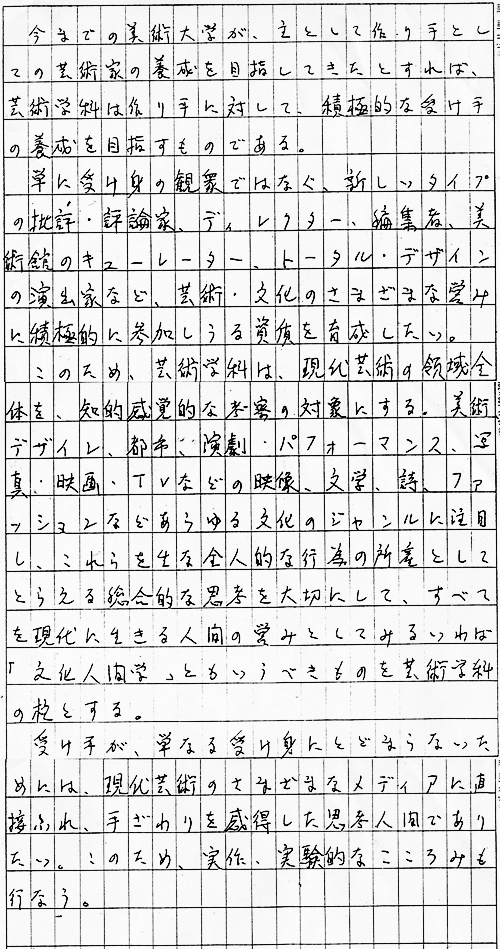 今までの美術大学が、主として作り手とし
ての芸術家の養成を目指してきたとすれば、
芸術学科は作り手に対して、積極的な受け手
の養成を目指すものである。
単に受け身の観衆ではなく、新しいタイプ
の批評・評論家、ディレクター、編集者、美
術館のキューレーター、トータル・デザイン
の演出家など、芸術・文化のさまざまな営み
に積極的に参加しうる資質を育成したい。
このため、芸術学科は、現代芸術の領域全
体を、知的感覚的な考察の対象にする。美術
デザイン、都市、演劇・パフォーマンス、写
真・映画・TVなどの映像、文学、詩、ファ
ッションなどあらゆる文化のジャンルに注目
し、これらを生な全人的な行為の所産として
とらえる総合的な思考を大切にして、すべて
を現代に生きる人間の営みとしてみるいわば
「文化人間学」ともいうべきものを芸術学科
の柱とする。
受け手が、単なる受け身にとどまらないた
めには、現代芸術のさまざまなメディアに直
接ふれ、手ざわりを感得した思考人間であり
たい。このため、実作、実験的なこころみも
行なう。